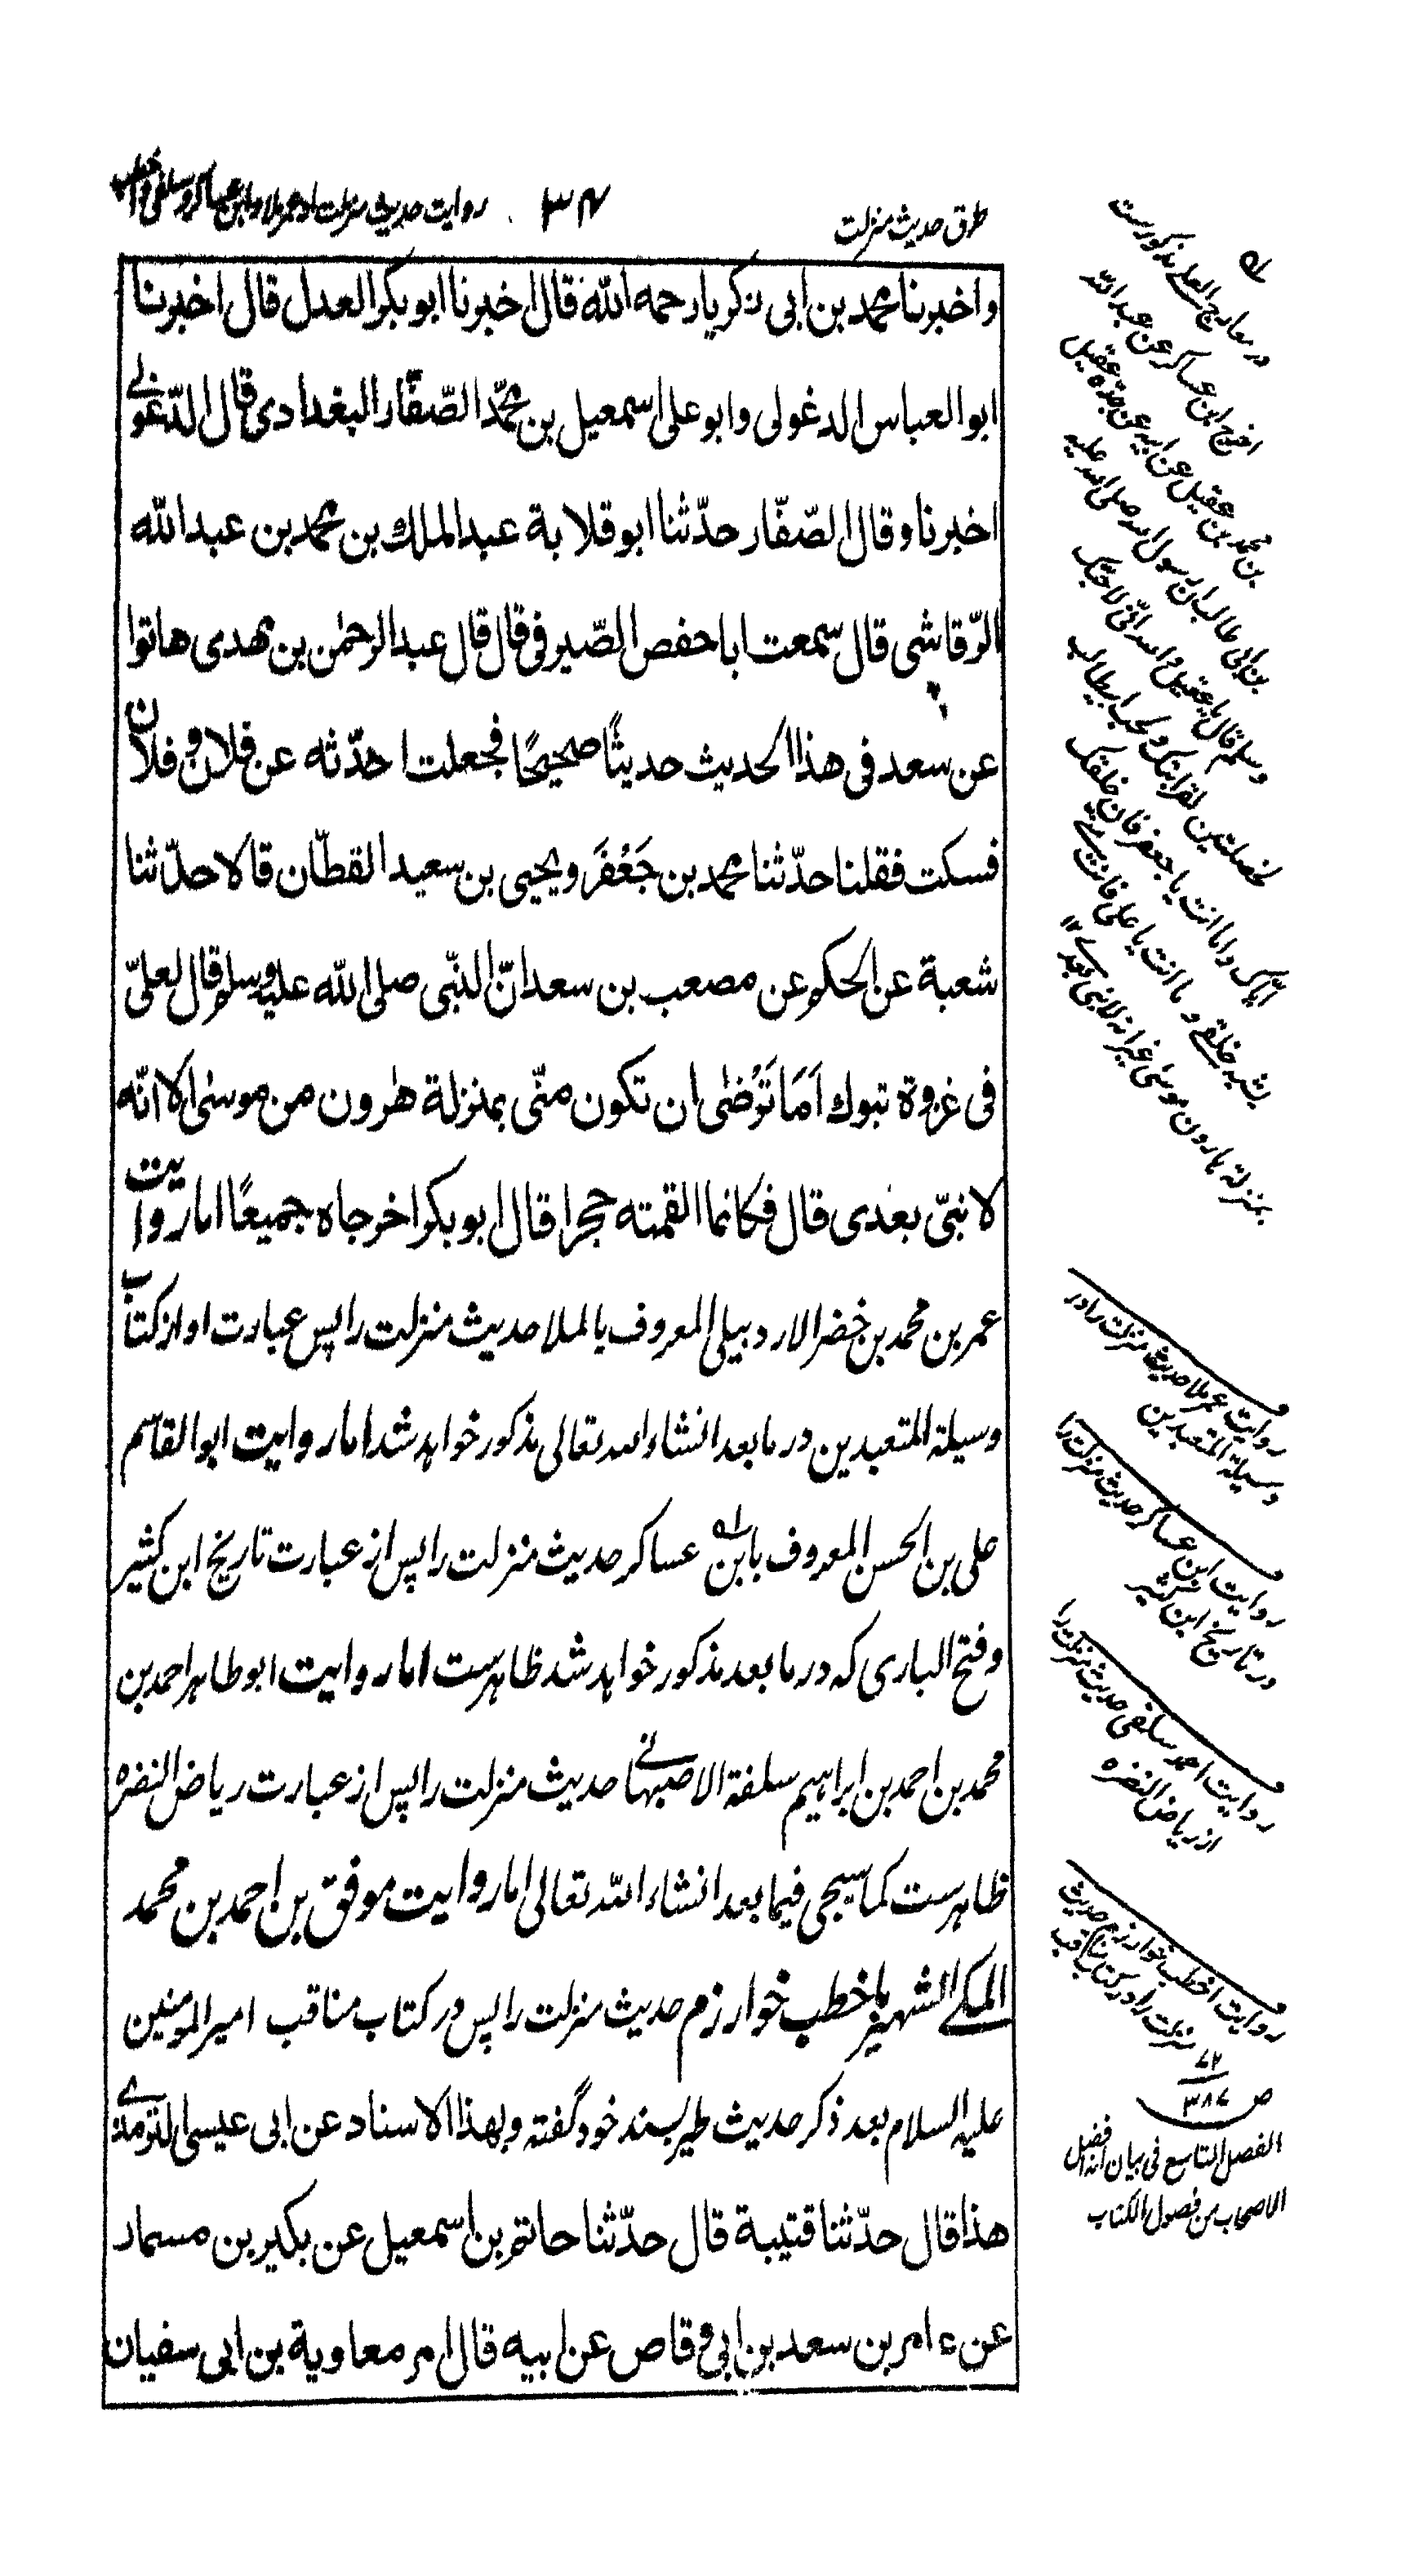 طرق حدیث منزلت
۳۴
روایت حدیث منزلت او عمر ملا و ابن عساکر و سلفی و اخطب
واخبرنا محمد بن ابی زکریا رحمه الله قال اخبرنا ابو بکر العدل قال اخبرنا
ابو العباس الدغولی وابو علی اسمعیل بن محمّد الصّفّار البغدادی قال الدّغولے
اخبرنا وقال الصّفّار حدّثنا ابو قلابة عبد الملك بن محمد بن عبد الله
الرّقاشی قال سمعت ابا حفص الصّیرفی قال قال عبد الرحمٰن بن مهدی هاتوا
عن سعد فی هذا الحدیث حدیثًا صحیحًا فجعلت احدّثه عن فلان وفلان
فسکت فقلنا حدّثنا محمد بن جَعْفَر ویحیی بن سعید القطّان قالا حدّثنا
شعبة عن الحکم عن مصعب بن سعد انّ النبّی صلی الله علیه وسلم قال لعلیّ
فی غزوة تبوك اَمَا تَرْضٰی ان تکون منّی بمنزلة هٰرون من موسٰی الا انّه
لا نبیّ بعدی قال فکانما القمته حجرا قال ابو بکر اخرجاه جمیعًا اما روایت
عمر بن محمد بن خضر الاردبیلی المعروف بالملا حدیث منزلت را پس عبارت او از کتاب
وسیلة المتعبدین در ما بعد انشاء الله تعالی مذکور خواهد شد اما روایت ابو القاسم
علی بن الحسن المعروف بابن عساکر حدیث منزلت را پس از عبارت تاریخ ابن کثیر
وفتح الباری که در ما بعد مذکور خواهد شد ظاهرست اما روایت ابو طاهر احمد بن
محمد بن احمد بن ابراهیم سلفة الاصبهانے حدیث منزلت را پس از عبارت ریاض النضره
ظاهرست کما سیجی فیما بعد انشاء الله تعالی اما روایت موفق بن احمد بن محمد
المکے الشهیر باخطب خوارزم حدیث منزلت را پس در کتاب مناقب امیر المومنین
علیه السلام بعد ذکر حدیث طیر بسند خود گفته وبهذا الاسناد عن ابی عیسی الترمذے
هذا قال حدّثنا قتیبة قال حدّثنا حاتم بن اسمعیل عن بکیر بن مسمار
عن عامر بن سعد بن ابی وقاص عن ابیه قال امر معاویة بن ابی سفیان
در معارج العلے مذکورست
اخرج ابن عساکر عن عبد الله
بن محمد بن عقیل عن ابیه عن جده عقیل
بن ابی طالب ان رسول الله صلی الله علیه
وسلم قال یا عقیل والله انّی لاحبّك
لخصلتین لقرابتك ولحب ابیطالب
ایّاك واما انت یا جعفر فان خلقك
یشبه خلقے و اما انت یا علی فانت منے
بمنزلة هارون من موسٰی غیر انه لا نبی بعدے ۱۲
روایت عمر ملا حدیث منزلت را در
وسیلة المتعبدین
روایت ابن عساکر حدیث منزلت را
در تاریخ ابن کثیر
روایت احمد سلفی حدیث منزلت را
از ریاض النضره
روایت اخطب خوارزم حدیث
منزلت را در کتاب مناقب
۷۲
ص ۳۸۷
الفصل التاسع فی بیان انه افضل
الاصحاب من فصول الکتاب